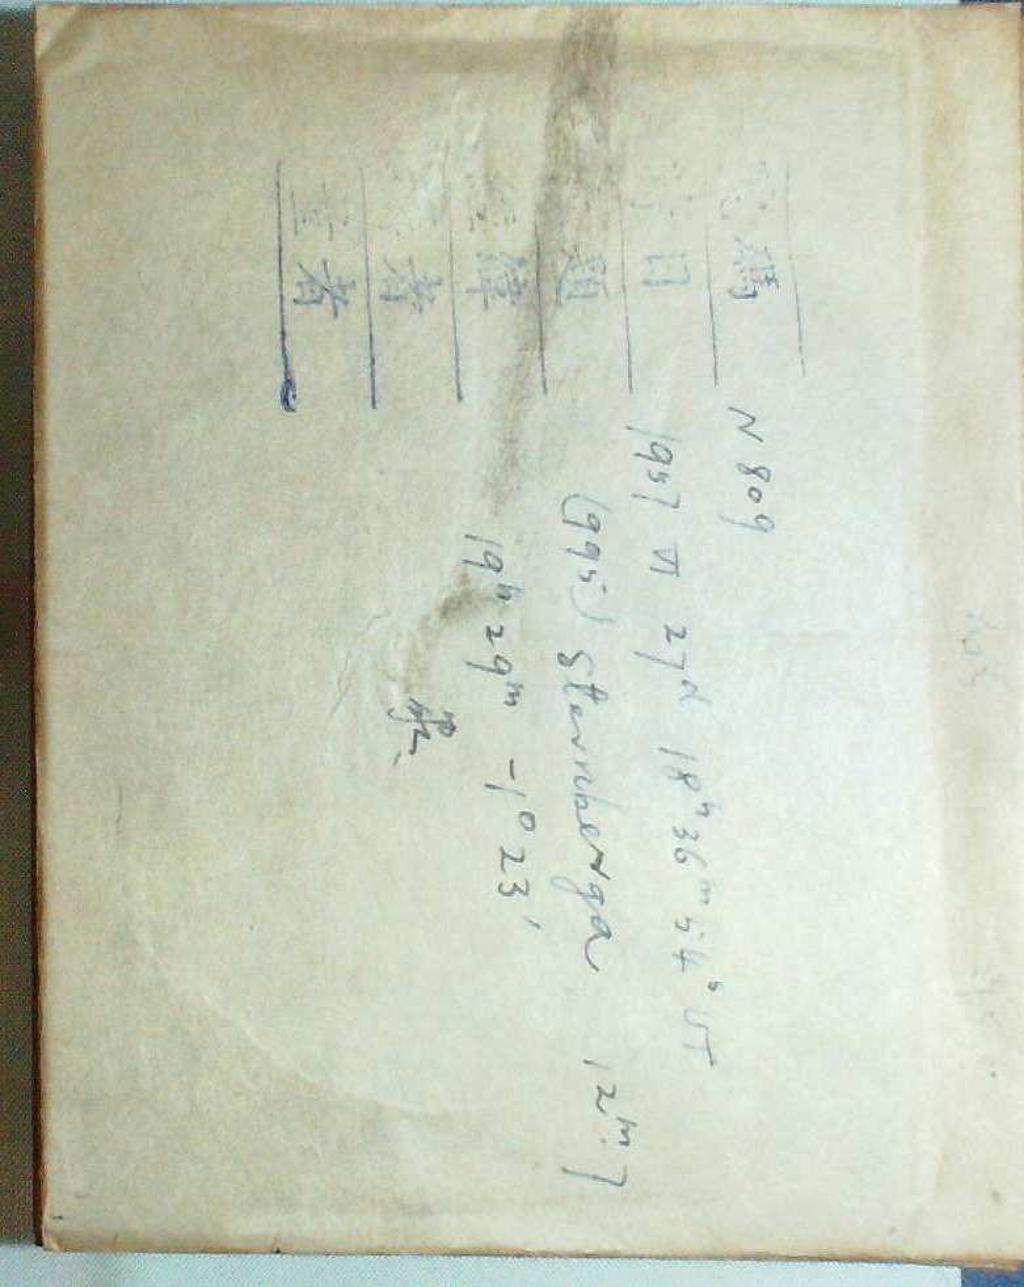 號碼 N 809
時日 1957 VI 27ᵈ 18ʰ 36ᵐ 54ˢ UT
題 (995) Sternberga 12ᵐ.7
經緯 19ʰ 29ᵐ -1° 23′
者
者